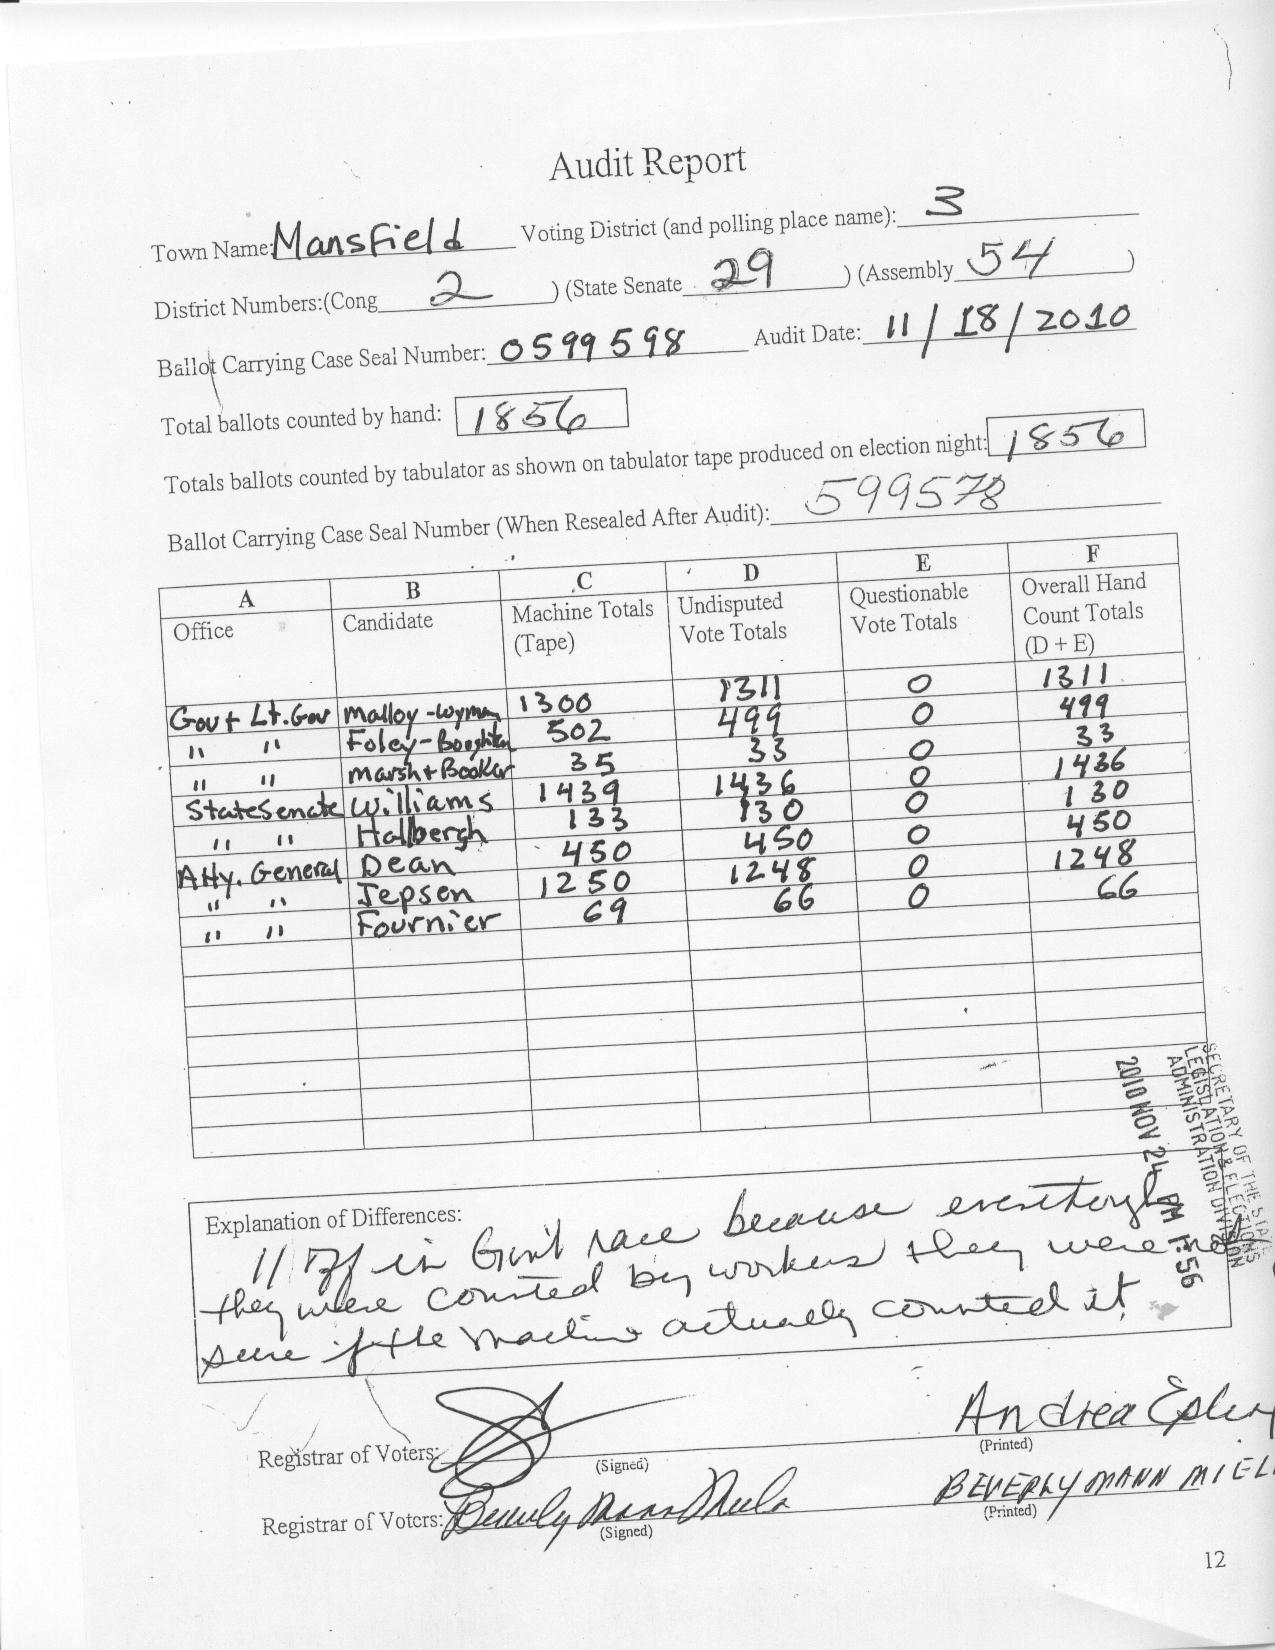 Audit Report
Town Name: Mansfield Voting District (and polling place name): 3
District Numbers:(Cong 2 ) (State Senate 29 ) (Assembly 54 )
Ballot Carrying Case Seal Number: 0599598 Audit Date: 11/18/2010
Total ballots counted by hand: 1856
Totals ballots counted by tabulator as shown on tabulator tape produced on election night: 1856
Ballot Carrying Case Seal Number (When Resealed After Audit): 599578
A B C D E F
Office Candidate Machine Totals (Tape) Undisputed Vote Totals Questionable Vote Totals Overall Hand Count Totals (D + E)
Gov + Lt. Gov Malloy-Wyman 1300 1311 0 1311
" " Foley-Boughton 502 499 0 499
" " Marsh + Booker 35 33 0 33
State Senate Williams 1439 1436 0 1436
" " Halbergh 133 130 0 130
Atty. General Dean 450 450 0 450
" " Jepsen 1250 1248 0 1248
" " Fournier 69 66 0 66
SECRETARY OF THE STATE
LEGISLATION & ELECTIONS
ADMINISTRATION DIVISION
2010 NOV 24 PM 1:56
Explanation of Differences:
11 off in Gov't race because eventhough
they were counted by workers they were not
sure if the machine actually counted it
Registrar of Voters: (Signed) Andrea (Printed)
Registrar of Voters: Beverly Mann Miela (Signed) BEVERLY MANN MIEL (Printed)
12